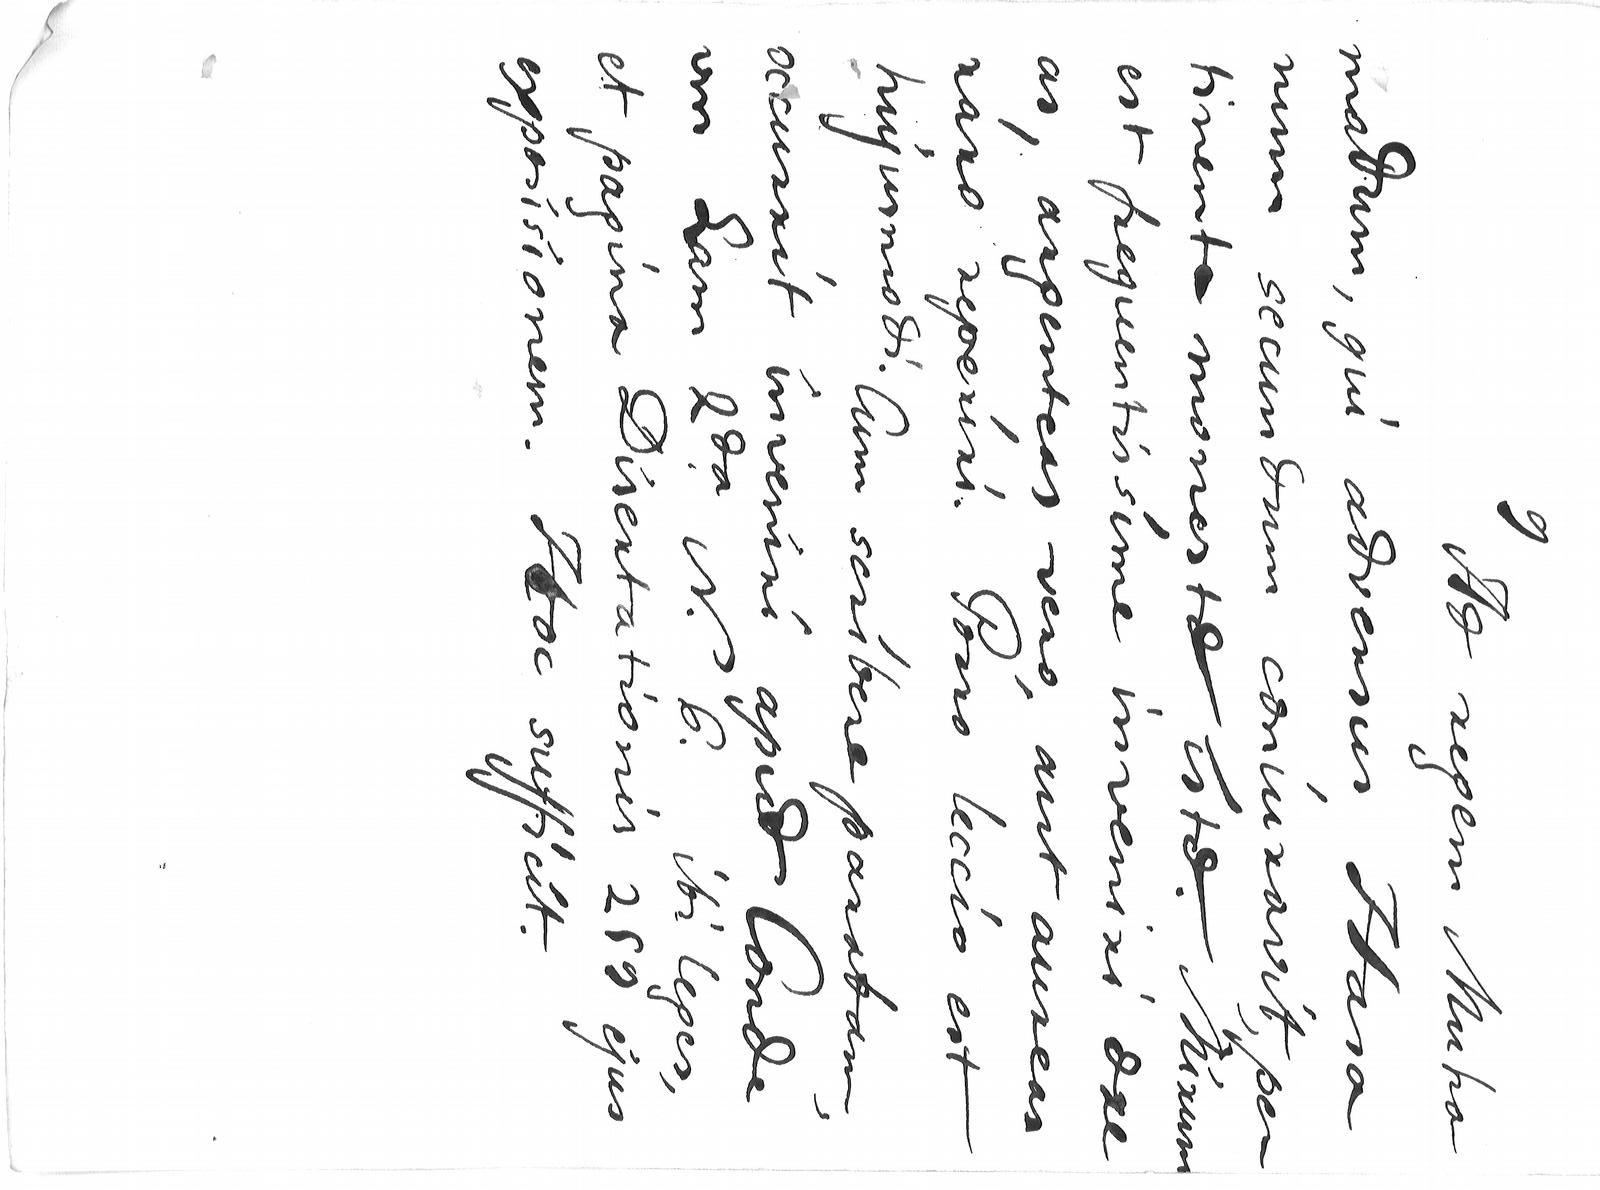 9
Ad regem Muha
madum, qui adversus Hana
num secundum coniuravit, per
tinent monesta ista. Mirum
est frequentissime inveniri drae
as, argenteas vero, aut aureas
raro reperiri. Porro leccio est
hujusmodi. Cum scribere parabam
occurrit inveniri apud Conde
vm Lam 2da N. 6. ibi leges,
et pagina Disertationis 259 ejus
exposisionem. Hoc sufficit.